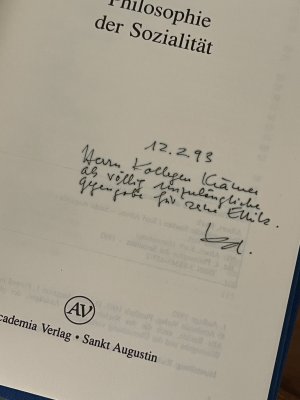 Philosophie
der Sozialität
12.2.93
Herrn Kollegen Krämer
als völlig unzulängliche
Gegengabe für seine Ethik.
AV
Academia Verlag • Sankt Augustin